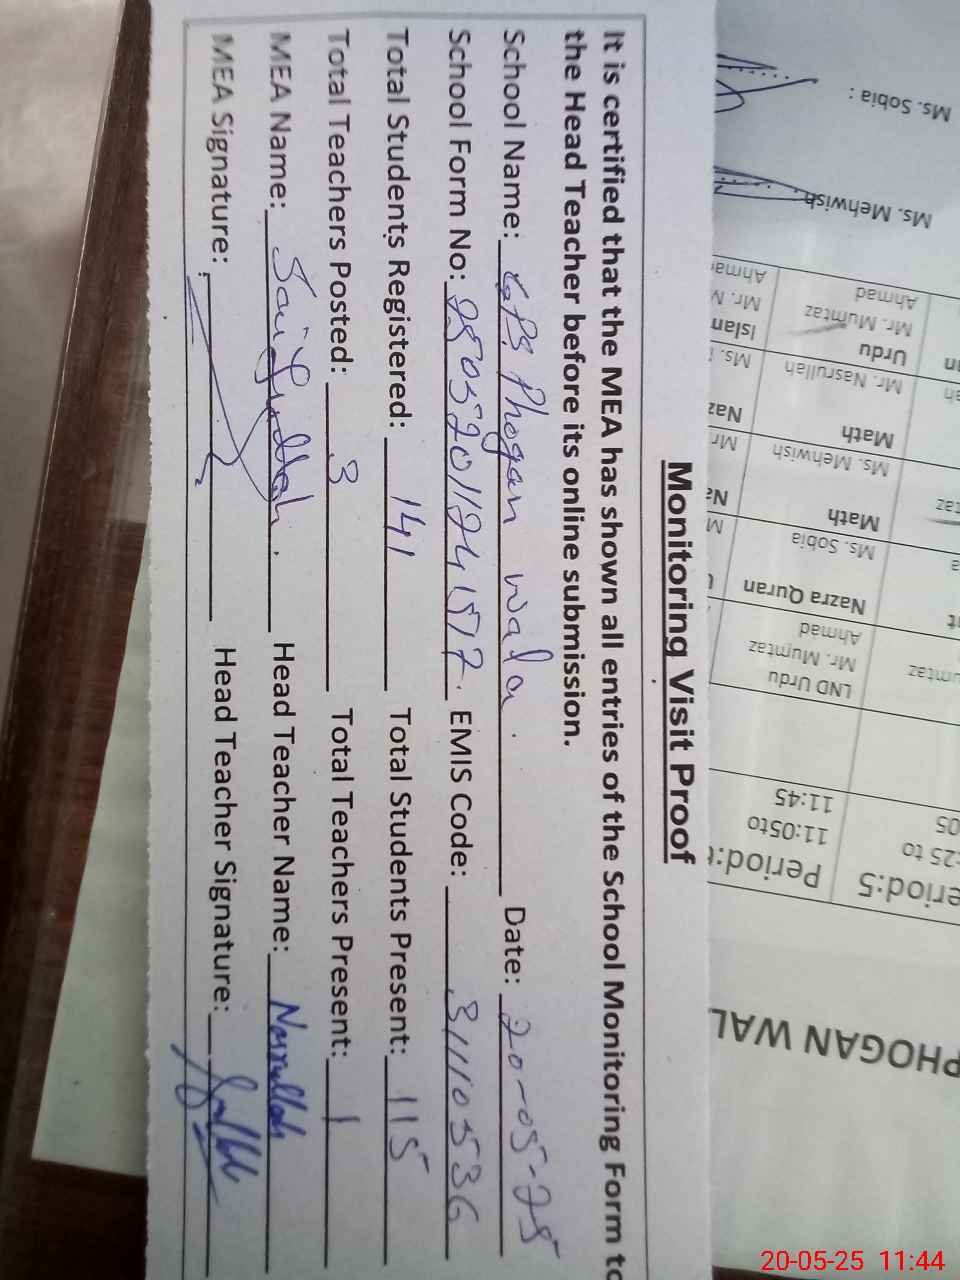 Monitoring Visit Proof
It is certified that the MEA has shown all entries of the School Monitoring Form to
the Head Teacher before its online submission.
School Name: GPS Phogan wala. Date: 20-05-25
School Form No: EMIS Code: 31110536
Total Students Registered: 141 Total Students Present: 115
Total Teachers Posted: 3 Total Teachers Present: 1
MEA Name: Saifullah. Head Teacher Name: Nasrullah
MEA Signature: Head Teacher Signature:
PHOGAN WAL
eriod:5 Period:6
:25 to 11:05to
05 11:45
LND Urdu
Mr. Mumtaz
Ahmad
Nazra Quran
Ms. Sobia
Math
Ms. Mehwish
Math
Mr. Nasrullah
Urdu Islam
Mr. Mumtaz Mr. M
Ahmad Ahmad
Ms. Mehwish
Ms. Sobia :
20-05-25 11:44